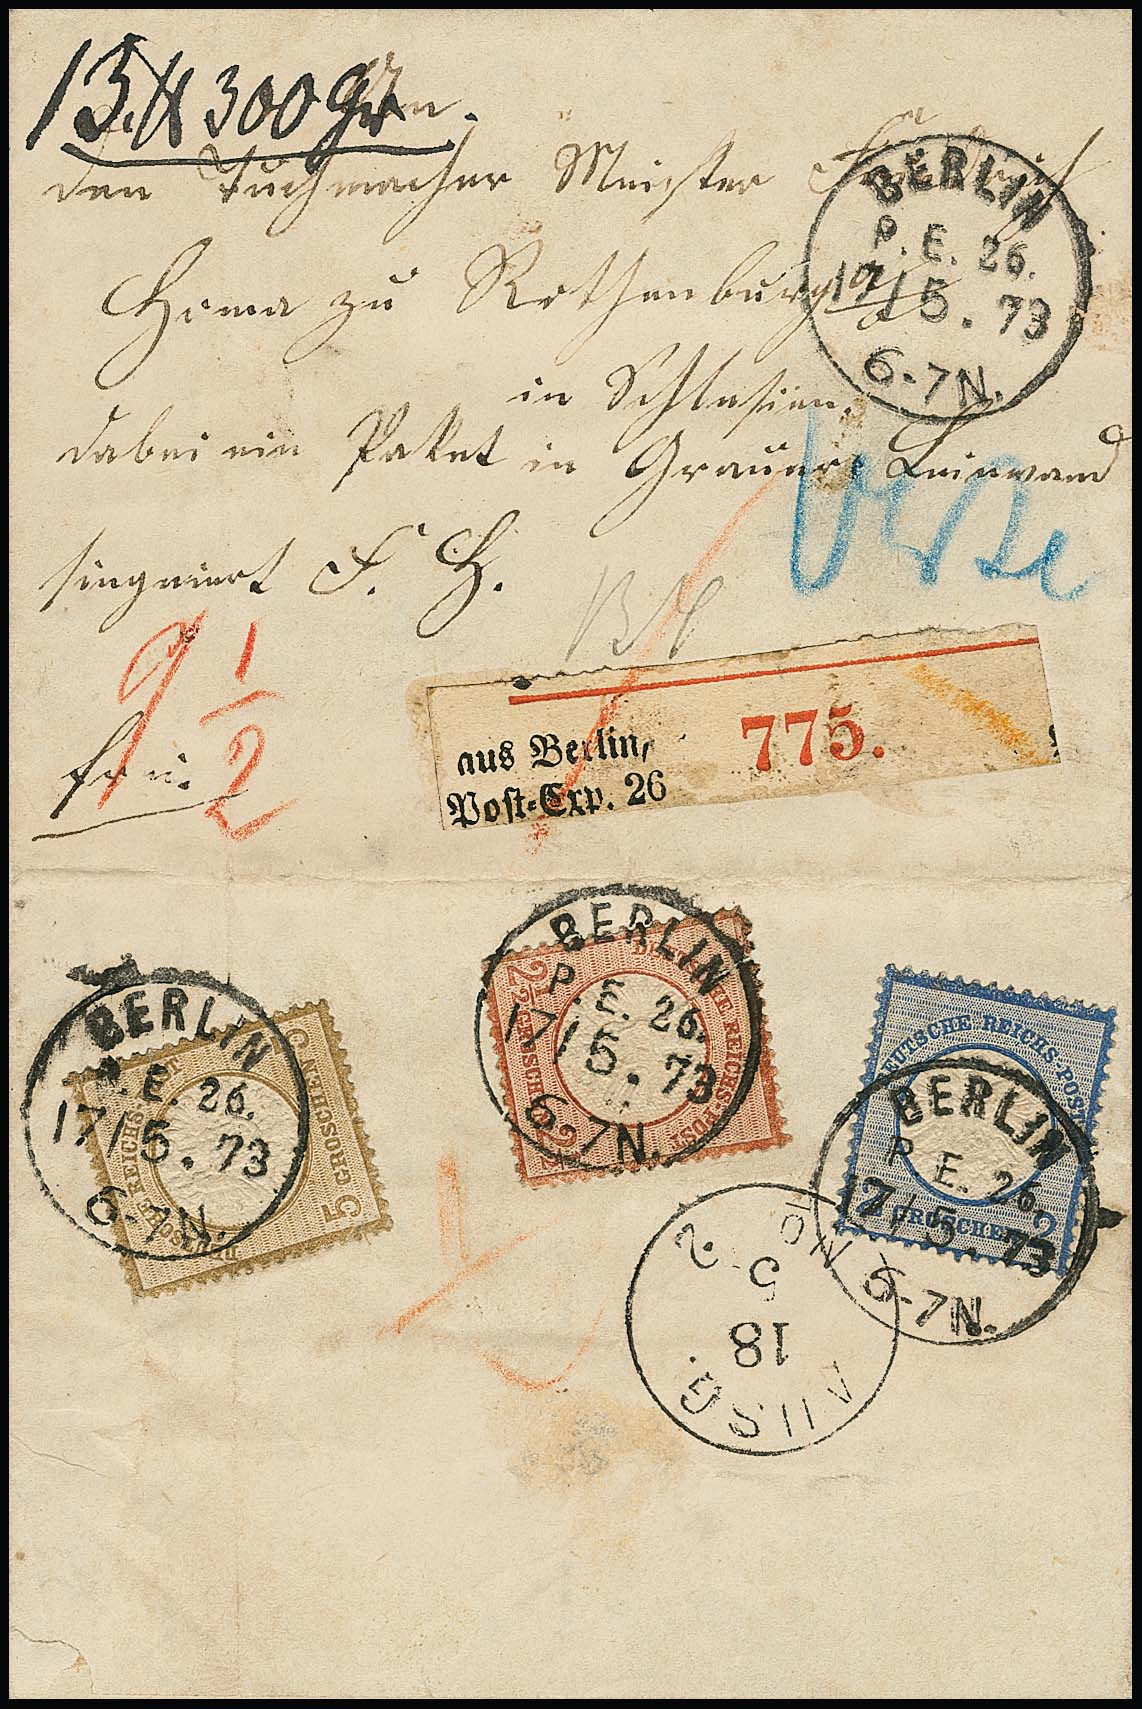 13 ℔ 300 Gr
An
den Tuchmacher Meister Friedrich
BERLIN
P.E. 26.
17/5.73
6-7N.
Homa zu Rothenburg a/o
in Schlesien.
dabei ein Paket in Grauer Leinwand
singniert F. H.
9 1/2
frei.
aus Berlin,
Post-Exp. 26
775.
BERLIN
P.E. 26.
17/5.73
6-7N.
5 GROSCHEN 5
DEUTSCHE REICHS-POST
BERLIN
P.E. 26.
17/5.73
6-7N.
2½ GROSCHEN 2½
DEUTSCHE REICHS-POST
BERLIN
P.E. 26.
17/5.73
6-7N.
DEUTSCHE REICHS-POST
2 GROSCHEN 2
AUSG.
18
5
No. 2